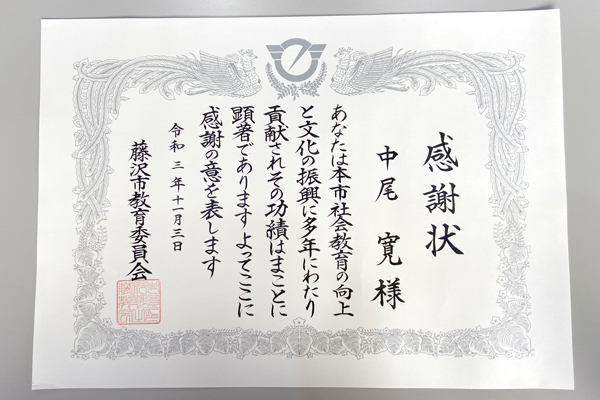 感謝状
中尾 寛 様
あなたは本市社会教育の向上
と文化の振興に多年にわたり
貢献されその功績はまことに
顕著であります よってここに
感謝の意を表します
令和三年十一月三日
藤沢市教育委員会